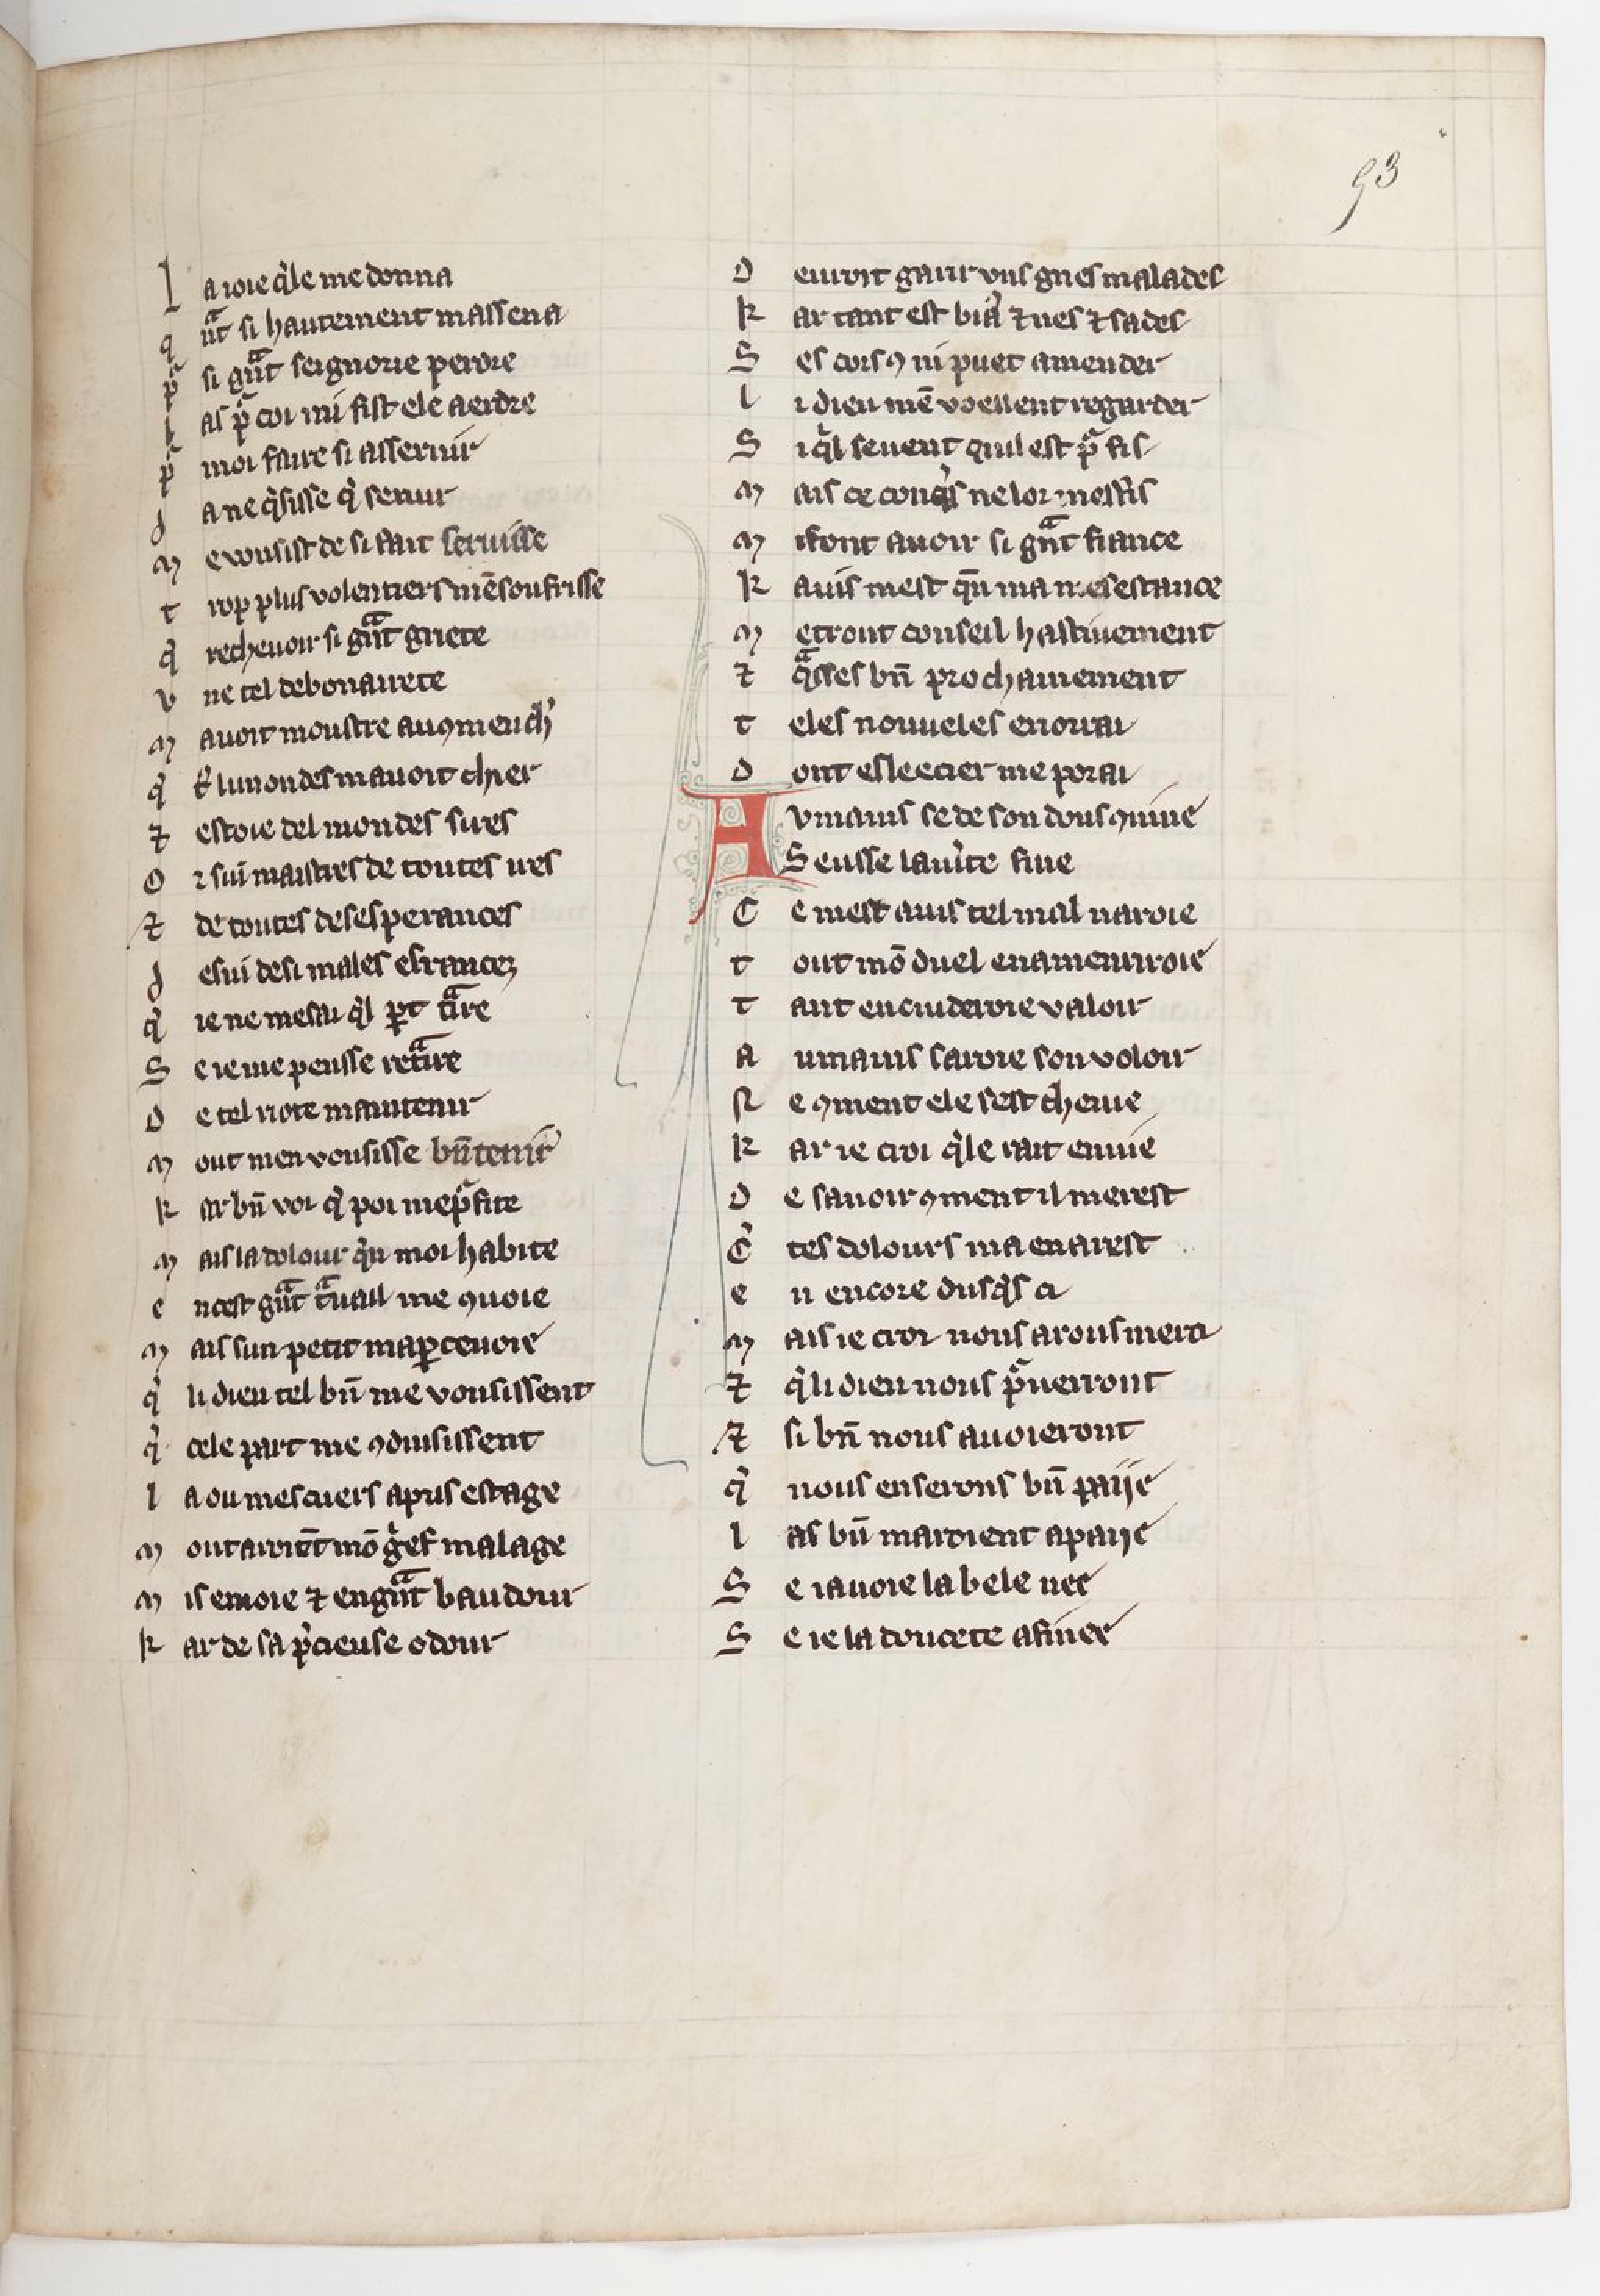 93
L a ioie q̾le me donna
q ᷓnt si hautement massena
pᷓ si gᷓnt seignorie perdre
l as pᷓ coi mi fist ele aerdre
pᷓ moi faire si asseruir
d a ne q̾sisse q̾ seruir
m e vousist de si fait seruisse
t rop plus volentiers mē soufrisse
q̾ recheuoir si gᷓnt griete
v ne tel debonairete
m auoit moustre au ꝯmench̾
q̾ tͬ li mondes mauoit chier
⁊ estoie del monde sires
O r sui maistres de toutes ires
⁊ de toutes desesperances
d e sui de si males estances
q̾ ie ne me sai q̾l ꝑt tᷓire
S e ie me peusse retᷓire
D e tel riote maintenir
m out men vousisse bn̄ tenir
k ar bn̄ voi q̾ poi me pᷓfite
m ais la dolour q̾n moi habite
e n cest gᷓnt tᷓuail me ꝯuoie
m ais sun petit maꝑceuoie
q̾ li dieu tel bn̄ me vousissent
q̾ cele part me ꝯduisissent
l a ou mes cuers a pris estage
m out aroiēt mō gͥef malage
m is en ioie ⁊ en gᷓnt baudour
k ar de sa p̾cieuse odour
D euroit garir vns gries malades
k ar tant est biaͬ ⁊ nes ⁊ sades
S es cors ꝯ ni puet amender
l i dieu mē voellent regarder
S i q̾l seuent quil est pᷓ fis
m ais ce conq̾s ne lor mesfis
m i font auoir si gᷓnt fiance
k auis mest qn̄ ma mesestance
m etront conseil hastiuement
⁊ qᷓsses bn̄ prochainement
t eles nouueles en orrai
D ont esleecier me porai
A vmains se de son dous ꝯuine
S eusse la u̾ite fine
C e mest auis tel mal naroie
t out mō duel en amenriroie
t ant en cuideroie valoir
a umains saroie son voloir
R e ꝯment ele sest cheuie
k ar ie croi q̾le rait enuie
D e sauoir ꝯment il merest
C̾ tes dolours ma en arest
e n encore dusq̾s ci
m ais ie croi nous arons merci
⁊ q̾ li dieu nous pᷓuerront
⁊ si bn̄ nous auoieront
q̾ nous en serons bn̄ paije
l as bn̄ maroient apaije
S e iauoie la bele nee
S e ie la doucete afinee